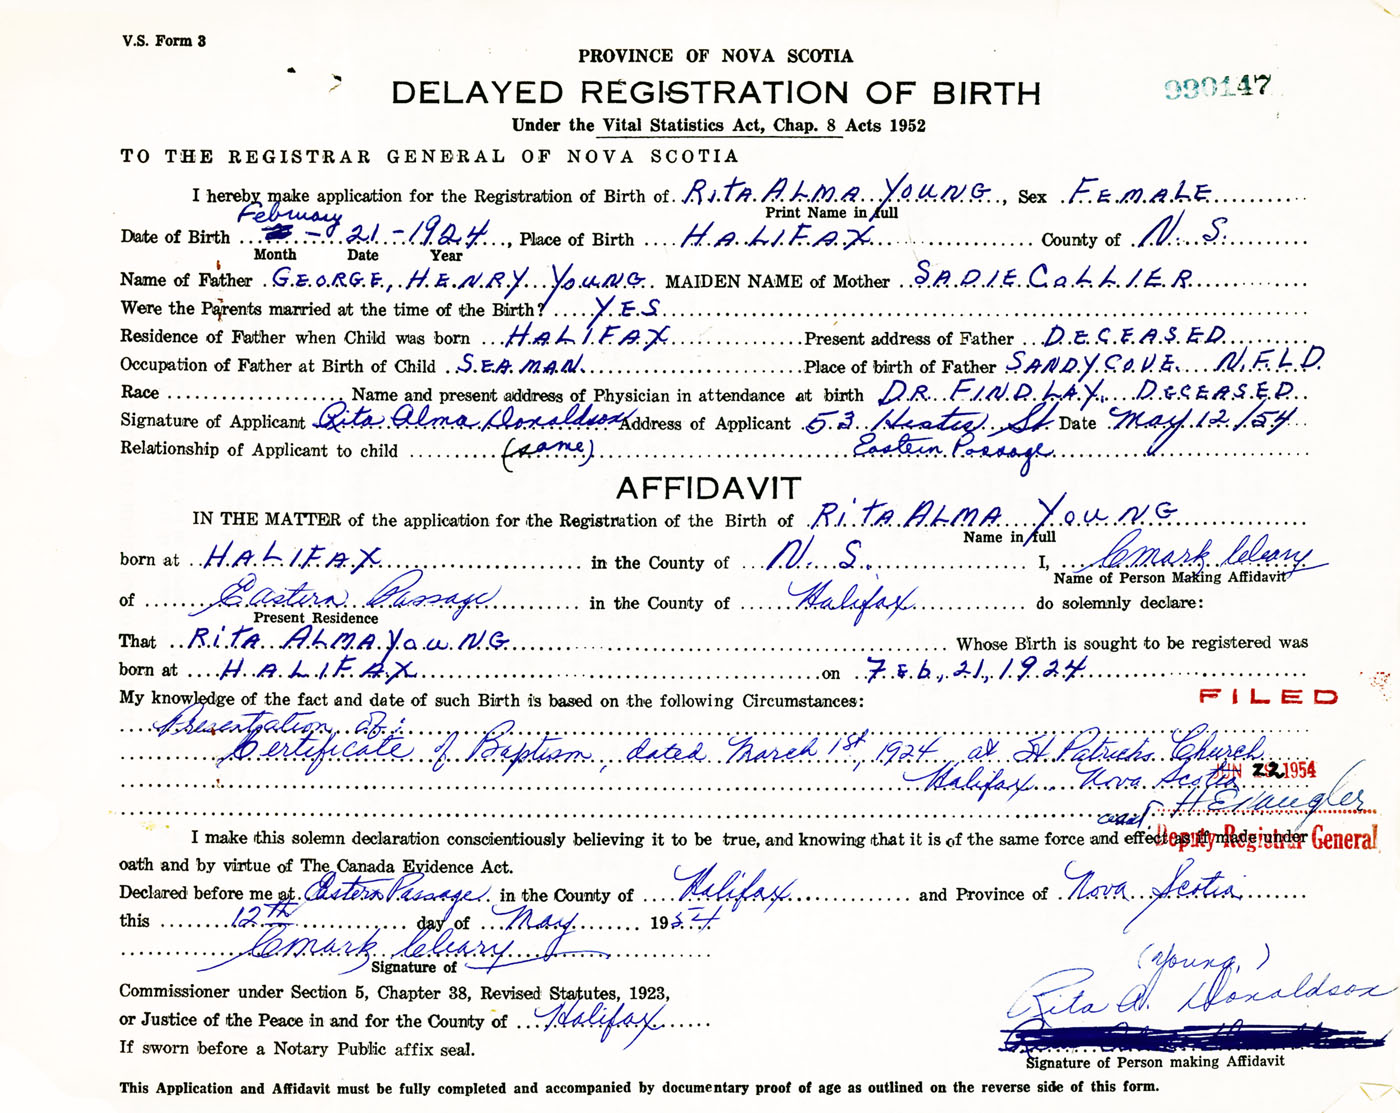 V.S. Form 3
PROVINCE OF NOVA SCOTIA
DELAYED REGISTRATION OF BIRTH
990147
Under the Vital Statistics Act, Chap. 8 Acts 1952
TO THE REGISTRAR GENERAL OF NOVA SCOTIA
I hereby make application for the Registration of Birth of RiTA ALMA YOUNG, Sex FEMALE
Print Name in full
February
Date of Birth - 21 - 1924, Place of Birth HALIFAX County of N. S.
Month Date Year
Name of Father GEORGE, HENRY YOUNG MAIDEN NAME of Mother SADIE COLLIER
Were the Parents married at the time of the Birth? YES
Residence of Father when Child was born HALIFAX Present address of Father DECEASED
Occupation of Father at Birth of Child SEAMAN Place of birth of Father SANDY COVE NFLD.
Race Name and present address of Physician in attendance at birth DR. FINDLAY, DECEASED
Signature of Applicant Rita Alma Donaldson Address of Applicant 53 St Date May 12/54
Relationship of Applicant to child (same) Eastern Passage
AFFIDAVIT
IN THE MATTER of the application for the Registration of the Birth of RiTA ALMA YOUNG
Name in full
born at HALIFAX in the County of N. S. I, Cmark Cleary
Name of Person Making Affidavit
of Eastern Passage in the County of Halifax do solemnly declare:
Present Residence
That RiTA ALMA YOUNG Whose Birth is sought to be registered was
born at HALIFAX on Feb, 21, 1924
My knowledge of the fact and date of such Birth is based on the following Circumstances:
FILED
Presentation of:
Certificate of Baptism, dated March 1st, 1924 at St Patricks Church
Halifax Nova Scotia
JUN 22 1954
H E Vaugler
I make this solemn declaration conscientiously believing it to be true, and knowing that it is of the same force and effect as if made under
Deputy Registrar General
oath and by virtue of The Canada Evidence Act.
Declared before me at Eastern Passage in the County of Halifax and Province of Nova Scotia
this 12th day of May 1954
Cmark Cleary
Signature of
(Young,)
Commissioner under Section 5, Chapter 38, Revised Statutes, 1923,
Rita A. Donaldson
or Justice of the Peace in and for the County of Halifax
If sworn before a Notary Public affix seal.
Signature of Person making Affidavit
This Application and Affidavit must be fully completed and accompanied by documentary proof of age as outlined on the reverse side of this form.